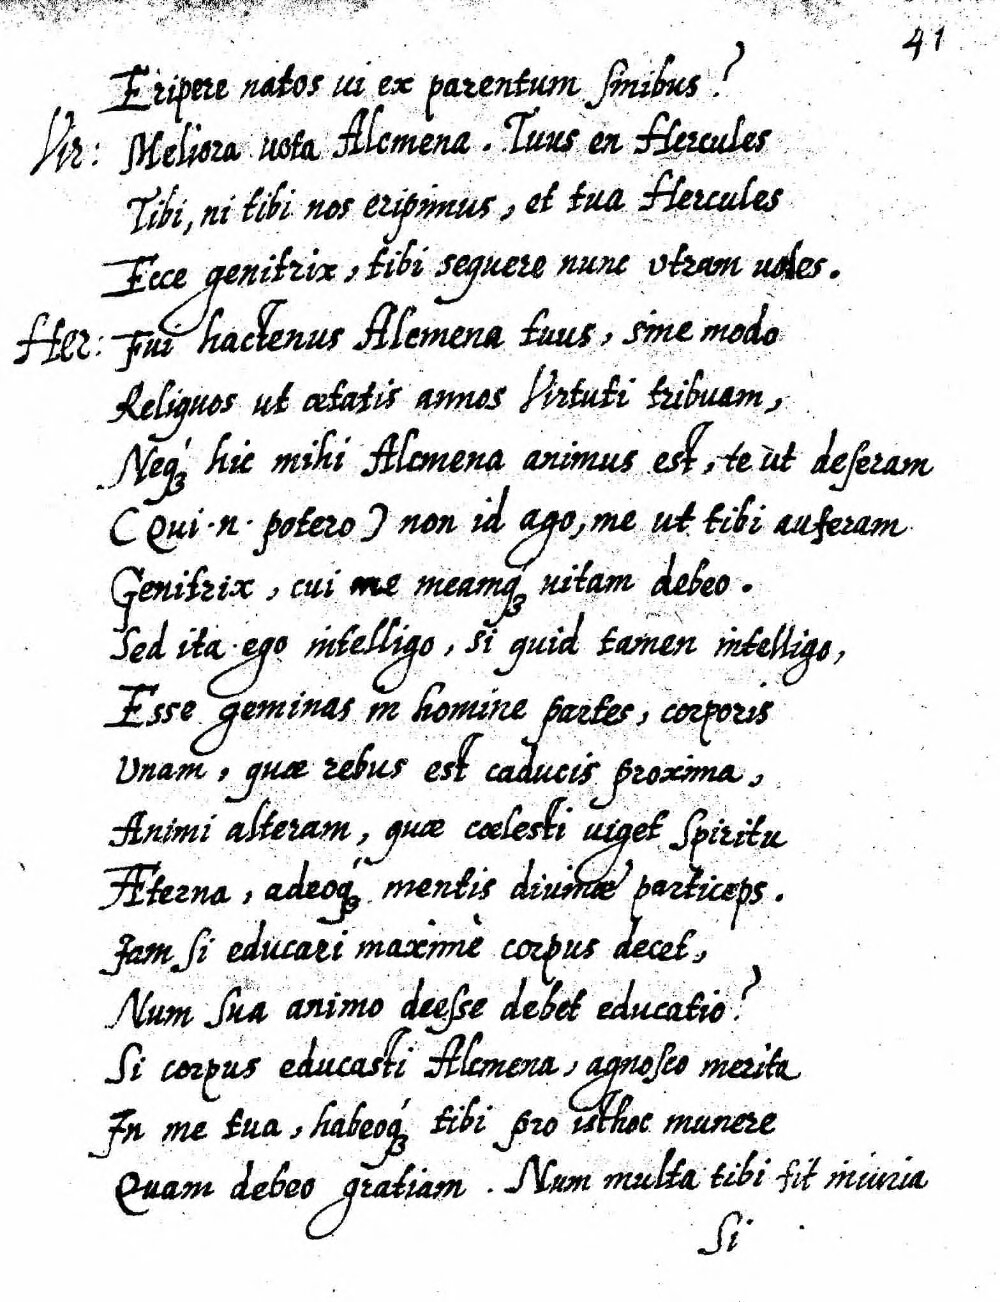 41
Eripere natos ui ex parentum sinibus?
Vir: Meliora uota Alcmena. Tuus en Hercules
Tibi, ni tibi nos eripimus, et tua Hercules
Ecce genitrix, tibi sequere nunc utram uoles.
Her: Fui hactenus Alcmena tuus, sine modo
Reliquos ut ætatis annos Virtuti tribuam,
Neqꝫ hic mihi Alcmena animus est, te ut deseram
(Qui·n· potero) non id ago, me ut tibi auferam
Genitrix, cui me meamqꝫ uitam debeo.
Sed ita ego intelligo, si quid tamen intelligo,
Esse geminas in homine partes, corporis
Vnam, quæ rebus est caducis proxima,
Animi alteram, quæ cœlesti uiget spiritu
Æterna, adeoqꝫ mentis diuinæ particeps.
Jam si educari maximè corpus decet,
Num sua animo deesse debet educatio?
Si corpus educasti Alcmena, agnosco merita
In me tua, habeoqꝫ tibi pro isthoc munere
Quam debeo gratiam. Num multa tibi fit iniuria
Si